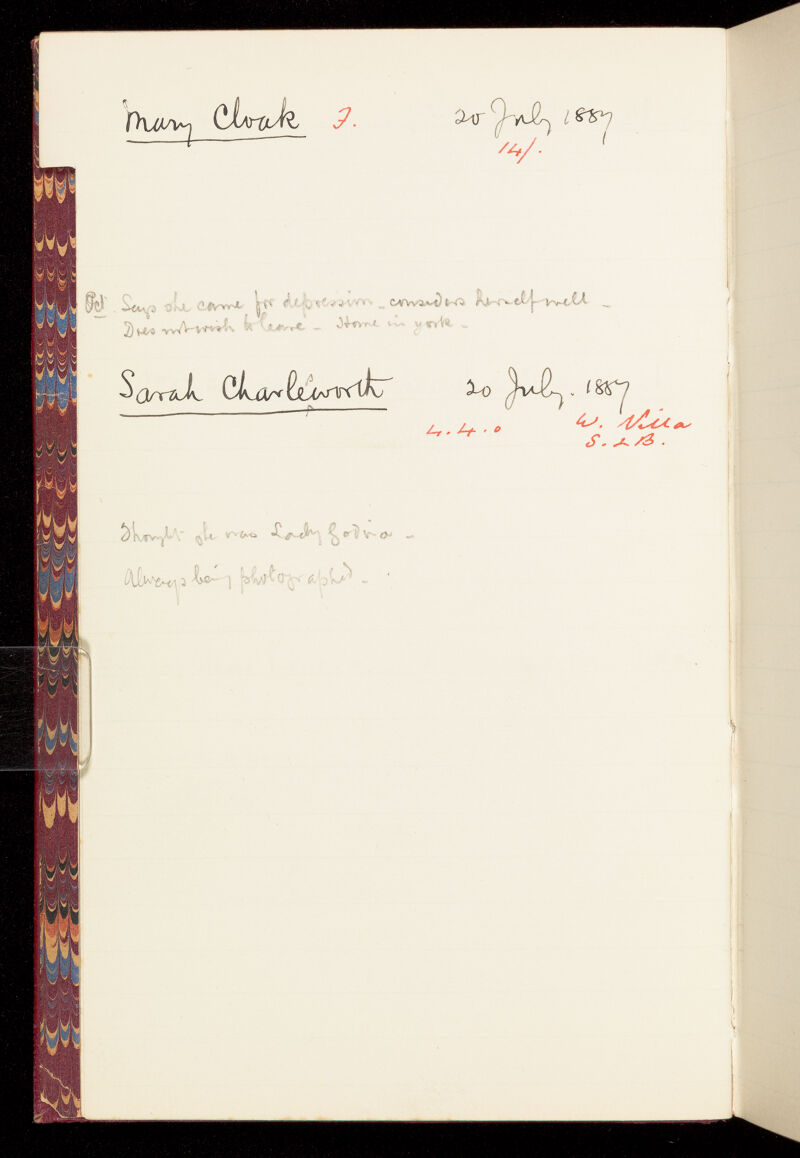 Mary Cloak F. 20 July 1887
14/.
Pd. Says she came for depression - considers herself well -
Does not wish to leave - Home in york -
Sarah Charlesworth 20 July. 1887
4.4.0 W. Villa
S. & B.
Thought she was Lady Godiva -
Always being photographed -